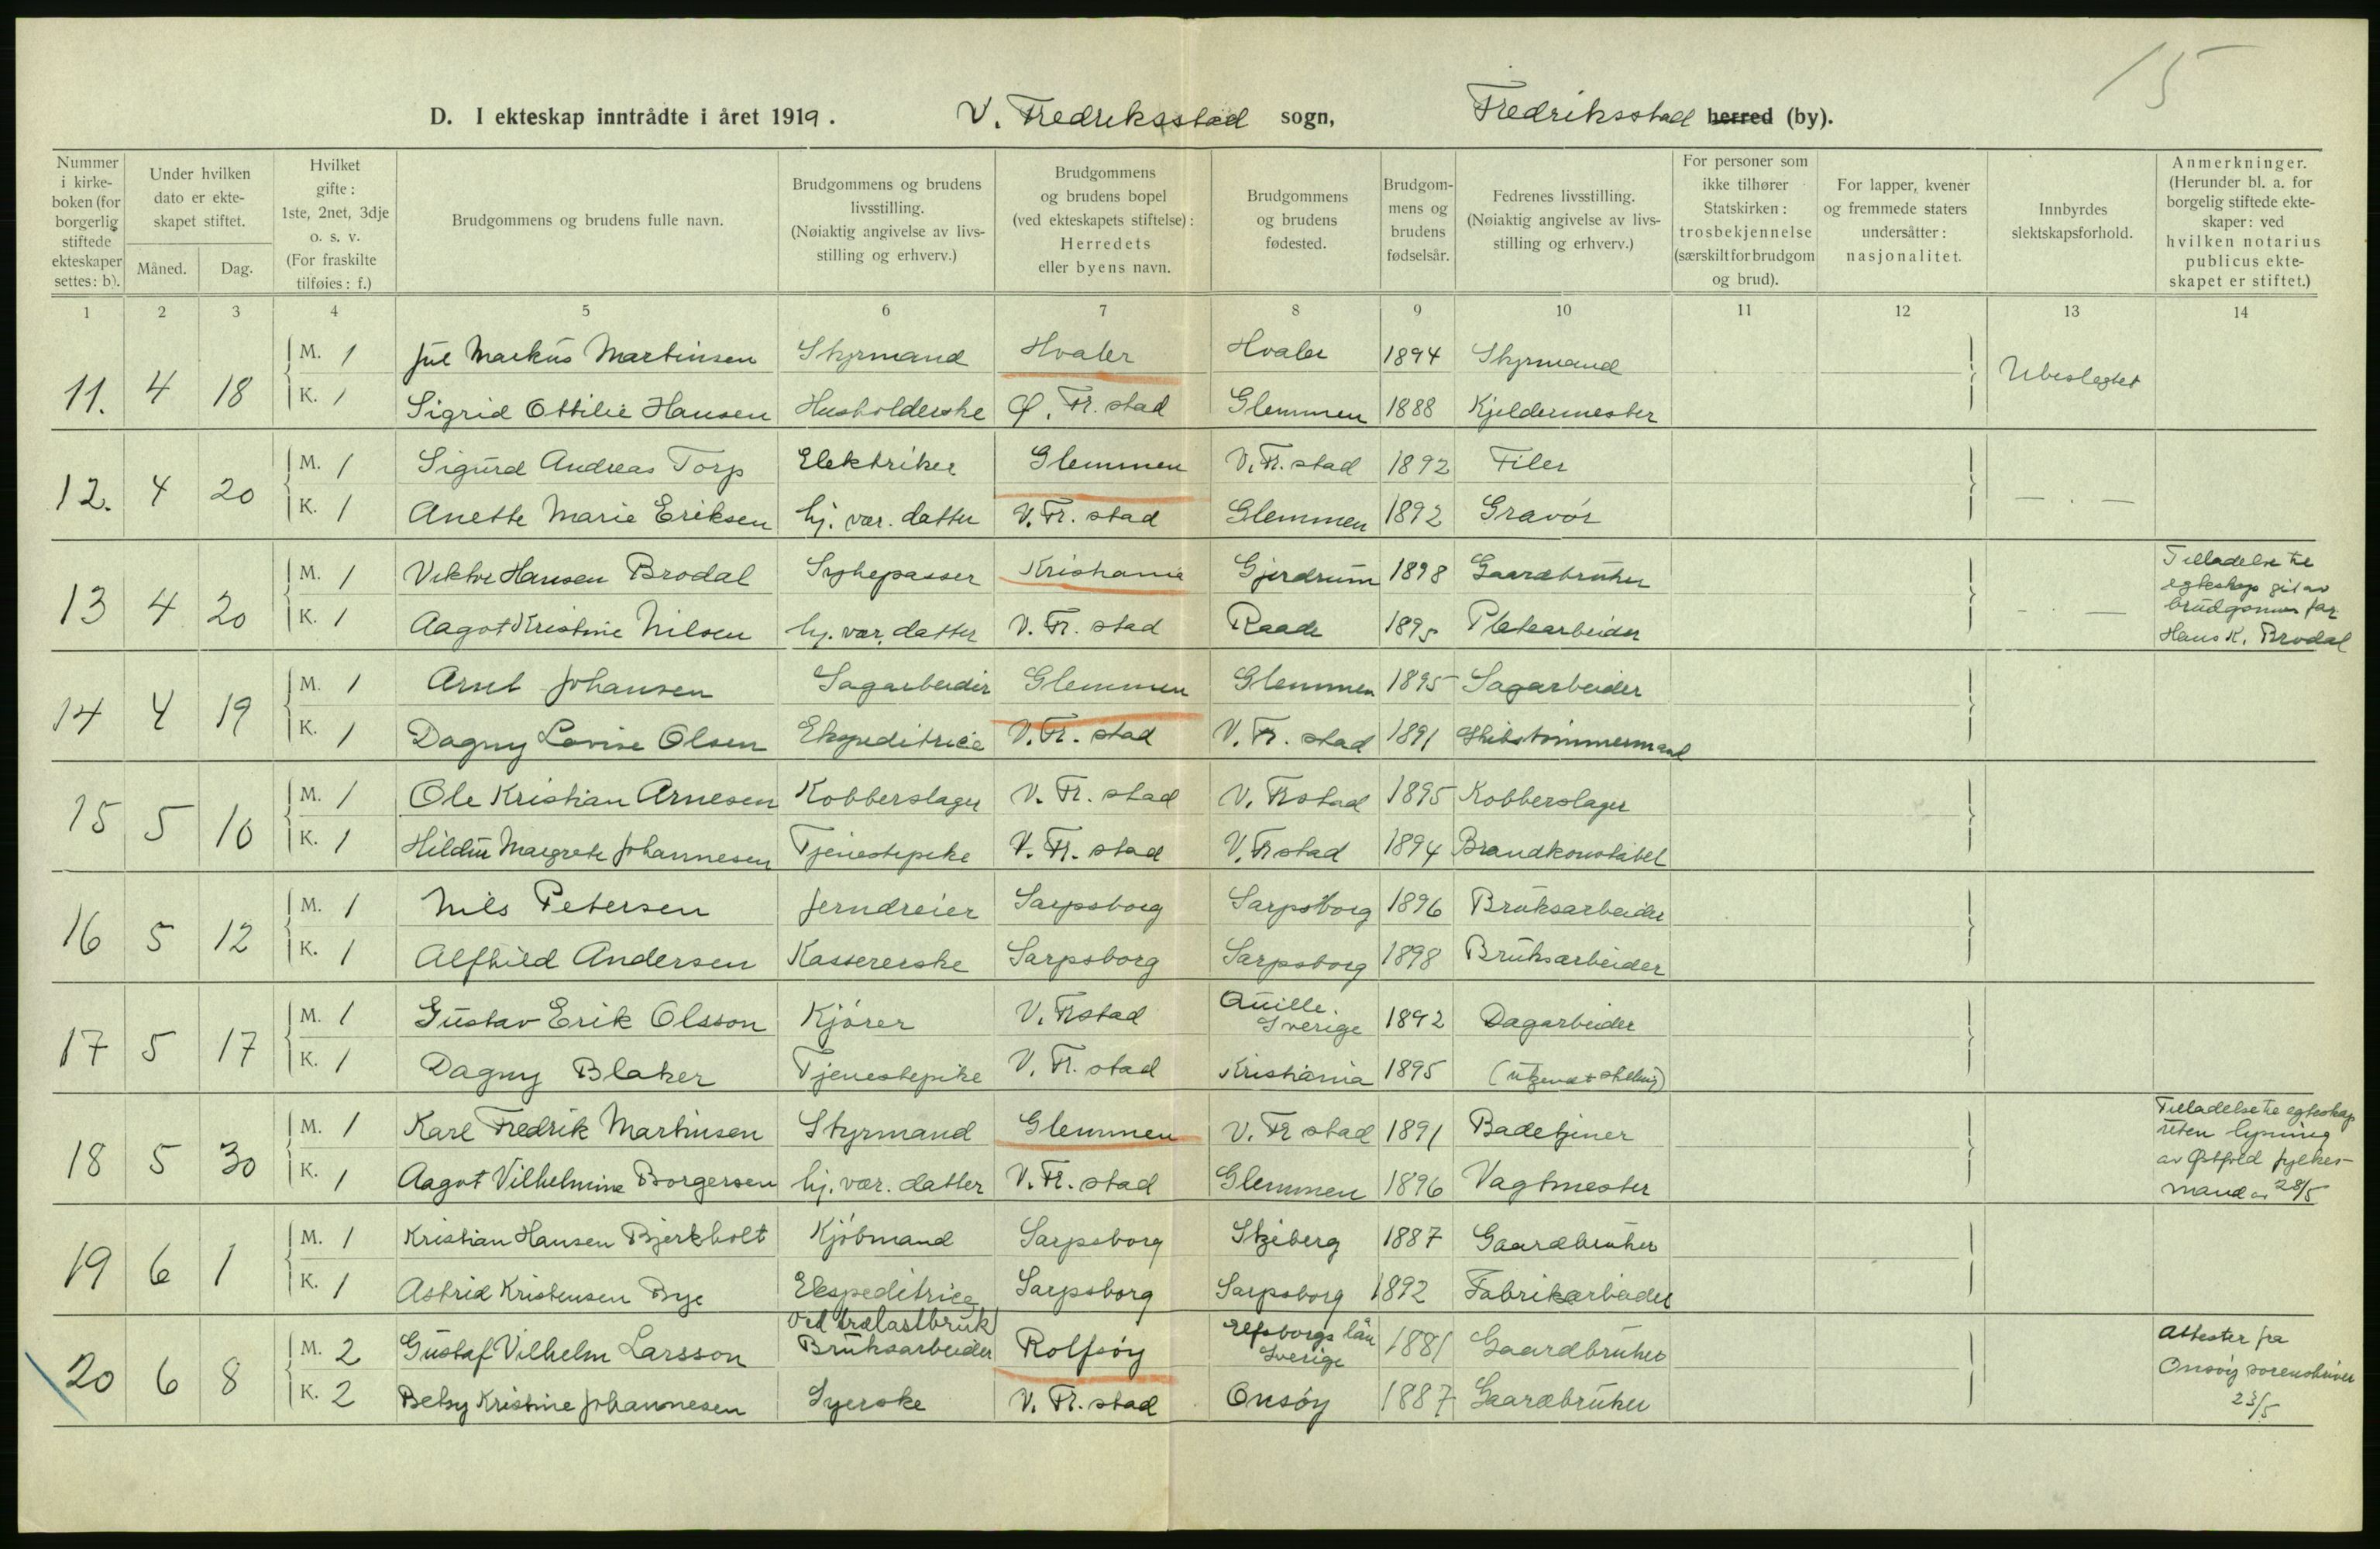 15
D. I ekteskap inntrådte i året 1919. V. Fredriksstad sogn, Fredriksstad herred (by).
Nummer i kirkeboken (for borgerlig stiftede ekteskaper settes: b).
Under hvilken dato er ekteskapet stiftet.
Måned. Dag.
Hvilket gifte: 1ste, 2net, 3dje o. s. v. (For fraskilte tilføies: f.)
Brudgommens og brudens fulle navn.
Brudgommens og brudens livsstilling. (Nøiaktig angivelse av livsstilling og erhverv.)
Brudgommens og brudens bopel (ved ekteskapets stiftelse): Herredets eller byens navn.
Brudgommens og brudens fødested.
Brudgommens og brudens fødselsår.
Fedrenes livsstilling. (Nøiaktig angivelse av livsstilling og erhverv.)
For personer som ikke tilhører Statskirken: trosbekjennelse (særskilt for brudgom og brud).
For lapper, kvener og fremmede staters undersåtter: nasjonalitet.
Innbyrdes slektskapsforhold.
Anmerkninger. (Herunder bl. a. for borgelig stiftede ekteskaper: ved hvilken notarius publicus ekteskapet er stiftet.)
1 2 3 4 5 6 7 8 9 10 11 12 13 14
11. 4 18 M. 1 Jul Markus Martinsen Styrmand Hvaler Hvaler 1894 Styrmand Ubeslegtet
K. 1 Sigrid Ottilie Hansen Husholderske Ø. Fr. stad Glemmen 1888 Kjeldermester
12. 4 20 M. 1 Sigurd Andreas Torp Elektriker Glemmen V. Fr. stad 1892 Filer — . —
K. 1 Anette Marie Eriksen hj. vær. datter V. Fr. stad Glemmen 1892 Gravör
13 4 20 M. 1 Viktor Hansen Brodal Sykepasser Kristiania Gjerdrum 1898 Gaardbruker - . — Tilladelse til egteskap git av brudgommens far Hans K. Brodal
K. 1 Aagot Kristine Nilsen hj. vær. datter V. Fr. stad Raade 1895 Platearbeider
14 4 19 M. 1 Arnt Johansen Sagarbeider Glemmen Glemmen 1895 Sagarbeider
K. 1 Dagny Lovise Olsen Ekspeditrice V. Fr. stad V. Fr. stad 1891 Skibstömmermand
15 5 10 M. 1 Ole Kristian Arnesen Kobberslager V. Fr. stad V. Fr stad 1895 Kobberslager
K. 1 Margrete Johannesen Tjenestepike V. Fr. stad V. Fr stad 1894 Brandkonstabel
16 5 12 M. 1 Nils Petersen Jerndreier Sarpsborg Sarpsborg 1896 Bruksarbeider
K. 1 Alfhild Andersen Kassererske Sarpsborg Sarpsborg 1898 Bruksarbeider
17 5 17 M. 1 Gustav Erik Olsson Kjörer V. Fr stad Quille. Sverige 1892 Dagarbeider
K. 1 Dagny Blaker Tjenestepike V. Fr. stad Kristiania 1895 (ukjendt stilling)
18 5 30 M. 1 Karl Fredrik Martinsen Styrmand Glemmen V. Fr stad 1891 Badetjener Tilladelse til egteskap uten lysning av Østfold fylkesmand av 28/5
K. 1 Aagot Vilhelmine Borgersen hj. vær. datter V. Fr. stad Glemmen 1896 Vagtmester
19 6 1 M. 1 Kristian Hansen Bjerkholt Kjöbmand Sarpsborg Skjeberg 1887 Gaardbruker
K. 1 Astrid Kristensen Bye Ekspeditrice Sarpsborg Sarpsborg 1892 Fabrikarbeider
20 6 8 M. 2 Gustaf Vilhelm Larsson ved trælastbruk Bruksarbeider Rolfsöy Elfsborgs län Sverige 1881 Gaardbruker Attester fra Onsöy sorenskriver 23/5
K. 2 Betsy Kristine Johannesen Syerske V. Fr. stad Onsöy 1887 Gaardbruker